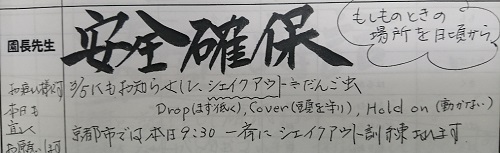 園長先生
安全確保
もしものときの
場所を日頃から
お世話様です
本日も
宜しく
お願いします
3/5にもお知らせした シェイクアウト≒だんご虫
Drop(まず低く), Cover(頭を守り), Hold on(動かない)
京都市では本日9:30 一斉にシェイクアウト訓練されます